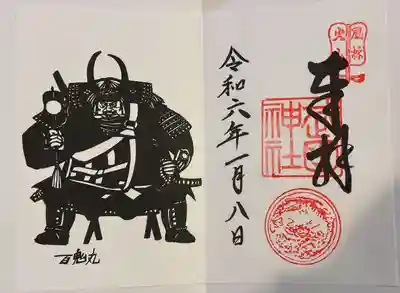 風林
火山
奉拝
武田
神社
令和六年一月八日
百鬼丸